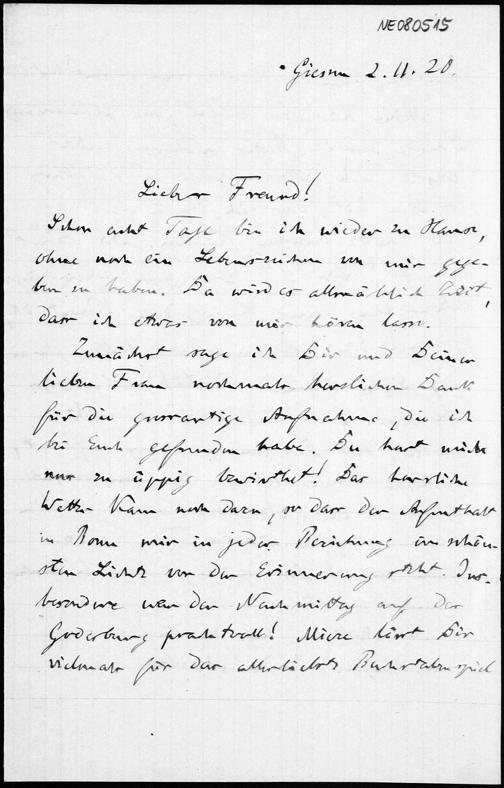 NE080515
Giessen 2.11.20.
Lieber Freund!
Schon acht Tage bin ich wieder zu Hause,
ohne noch ein Lebenszeichen von mir gege-
ben zu haben. Da wird es allmählich Zeit,
dass ich etwas von mir hören lasse.
Zunächst sage ich Dir und Deiner
lieben Frau nochmals herzlichen Dank
für die grossartige Aufnahme, die ich
bei Euch gefunden habe. Du hast mich
nur zu üppig bewirthet! Das herrliche
Wetter kam noch dazu, so dass der Aufenthalt
in Bonn mir in jeder Beziehung im schön-
sten Lichte vor der Erinnerung steht. Ins-
besondere war der Nachmittag auf der
Godesburg prachtvoll! Mieze lässt Dir
vielmals für das allerliebste Buchstabenspiel